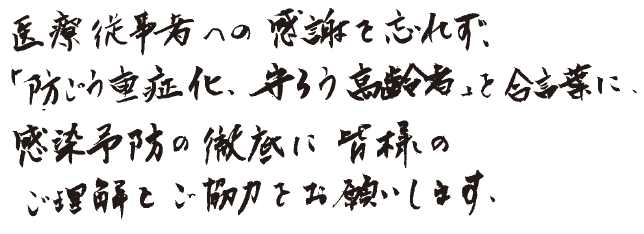 医療従事者への感謝を忘れず、
「防ごう重症化、守ろう高齢者」を合言葉に、
感染予防の徹底に皆様の
ご理解とご協力をお願いします、